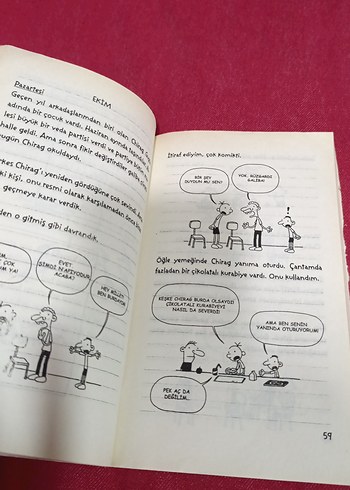 EKİM
Pazartesi
Geçen yıl arkadaşlarımdan biri olan, Chirag
adında bir çocuk vardı. Haziran ayında taşındı
büyük bir veda partisi verdi ve
halle geldi. Ama sonra fikir değiştirdiler
bugün Chirag okuldaydı.
Chirag'ı yeniden gördüğüne çok sevindi. Ama
iki kişi, onu resmi olarak karşılamadan önce
geçmeye karar verdik.
o gitmiş gibi davrandık.
ÇOK
YA!
EVET
ŞİMDİ N'APIYODUR
ACABA?
HEY MİLLET
BEN BURDAYIM!
İtiraf ediyim, çok komikti.
BİR ŞEY
DUYDUN MU SEN?
YOK. RÜZGARDI
GALİBA!
Öğle yemeğinde Chirag yanıma oturdu. Çantamda
fazladan bir çikolatalı kurabiye vardı. Onu kullandım.
KEŞKE CHIRAG BURDA OLSAYDI!
ÇİKOLATALI KURABİYEYİ
NASIL DA SEVERDİ!
AMA BEN SENİN
YANINDA OTURUYORUM!
PEK AÇ DA
DEĞİLİM...
59